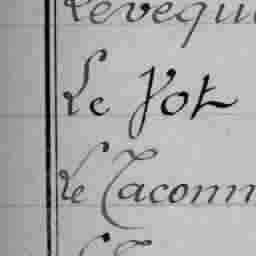 Levequ
Le Vot
Le Taconn